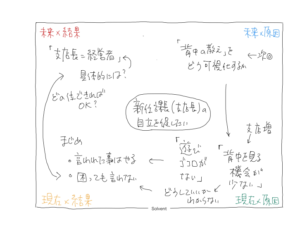 未来×結果
未来×原因
「支店長=経営者」
具体的には?
どの位できれば
OK?
「背中の教え」を
どう可視化するか
←次回
新任課長(支店長)の
自立を促したい
支店増
まとめ
・言われた事はやる
・困っても言わない
「遊び
ゴコロが
ない」
「背中を見る
機会が
少ない」
どうしていいか
わからない
現在×結果
現在×原因